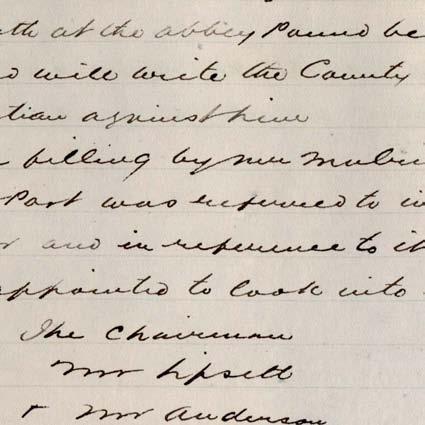 at the abbey Pound be
will write the County
against him
filling by Mr
Part was referred to in
and in reference to it
appointed to look into
The Chairman
Mr Lipsett
+ Mr Anderson